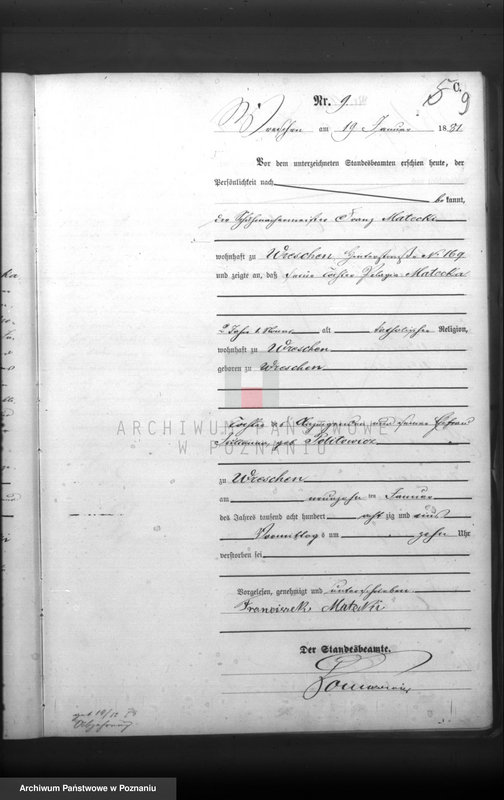 C.
9
Nr. 9
Wreschen am 19 Januar 1881
Vor dem unterzeichneten Standesbeamten erschien heute, der
Persönlichkeit nach
bekannt,
der Schuhmachermeister Franz Matecki
wohnhaft zu Wreschen, Hinterstraße No 169
und zeigte an, daß seine Tochter Pelagia Matecka
2 Jahr 1 Monat alt katholischer Religion,
wohnhaft zu Wreschen
geboren zu Wreschen
Tochter des Anzeigenden und seiner Ehefrau
geb. Politowicz
ARCHIWUM PAŃSTWOWE
W POZNANIU
zu Wreschen
am neunzehnten Januar
des Jahres tausend acht hundert achtzig und eins
Vormittags um zehn Uhr
verstorben sei
Vorgelesen, genehmigt und unterschrieben
Franciszek Matecki
Der Standesbeamte.
Archiwum Państwowe w Poznaniu